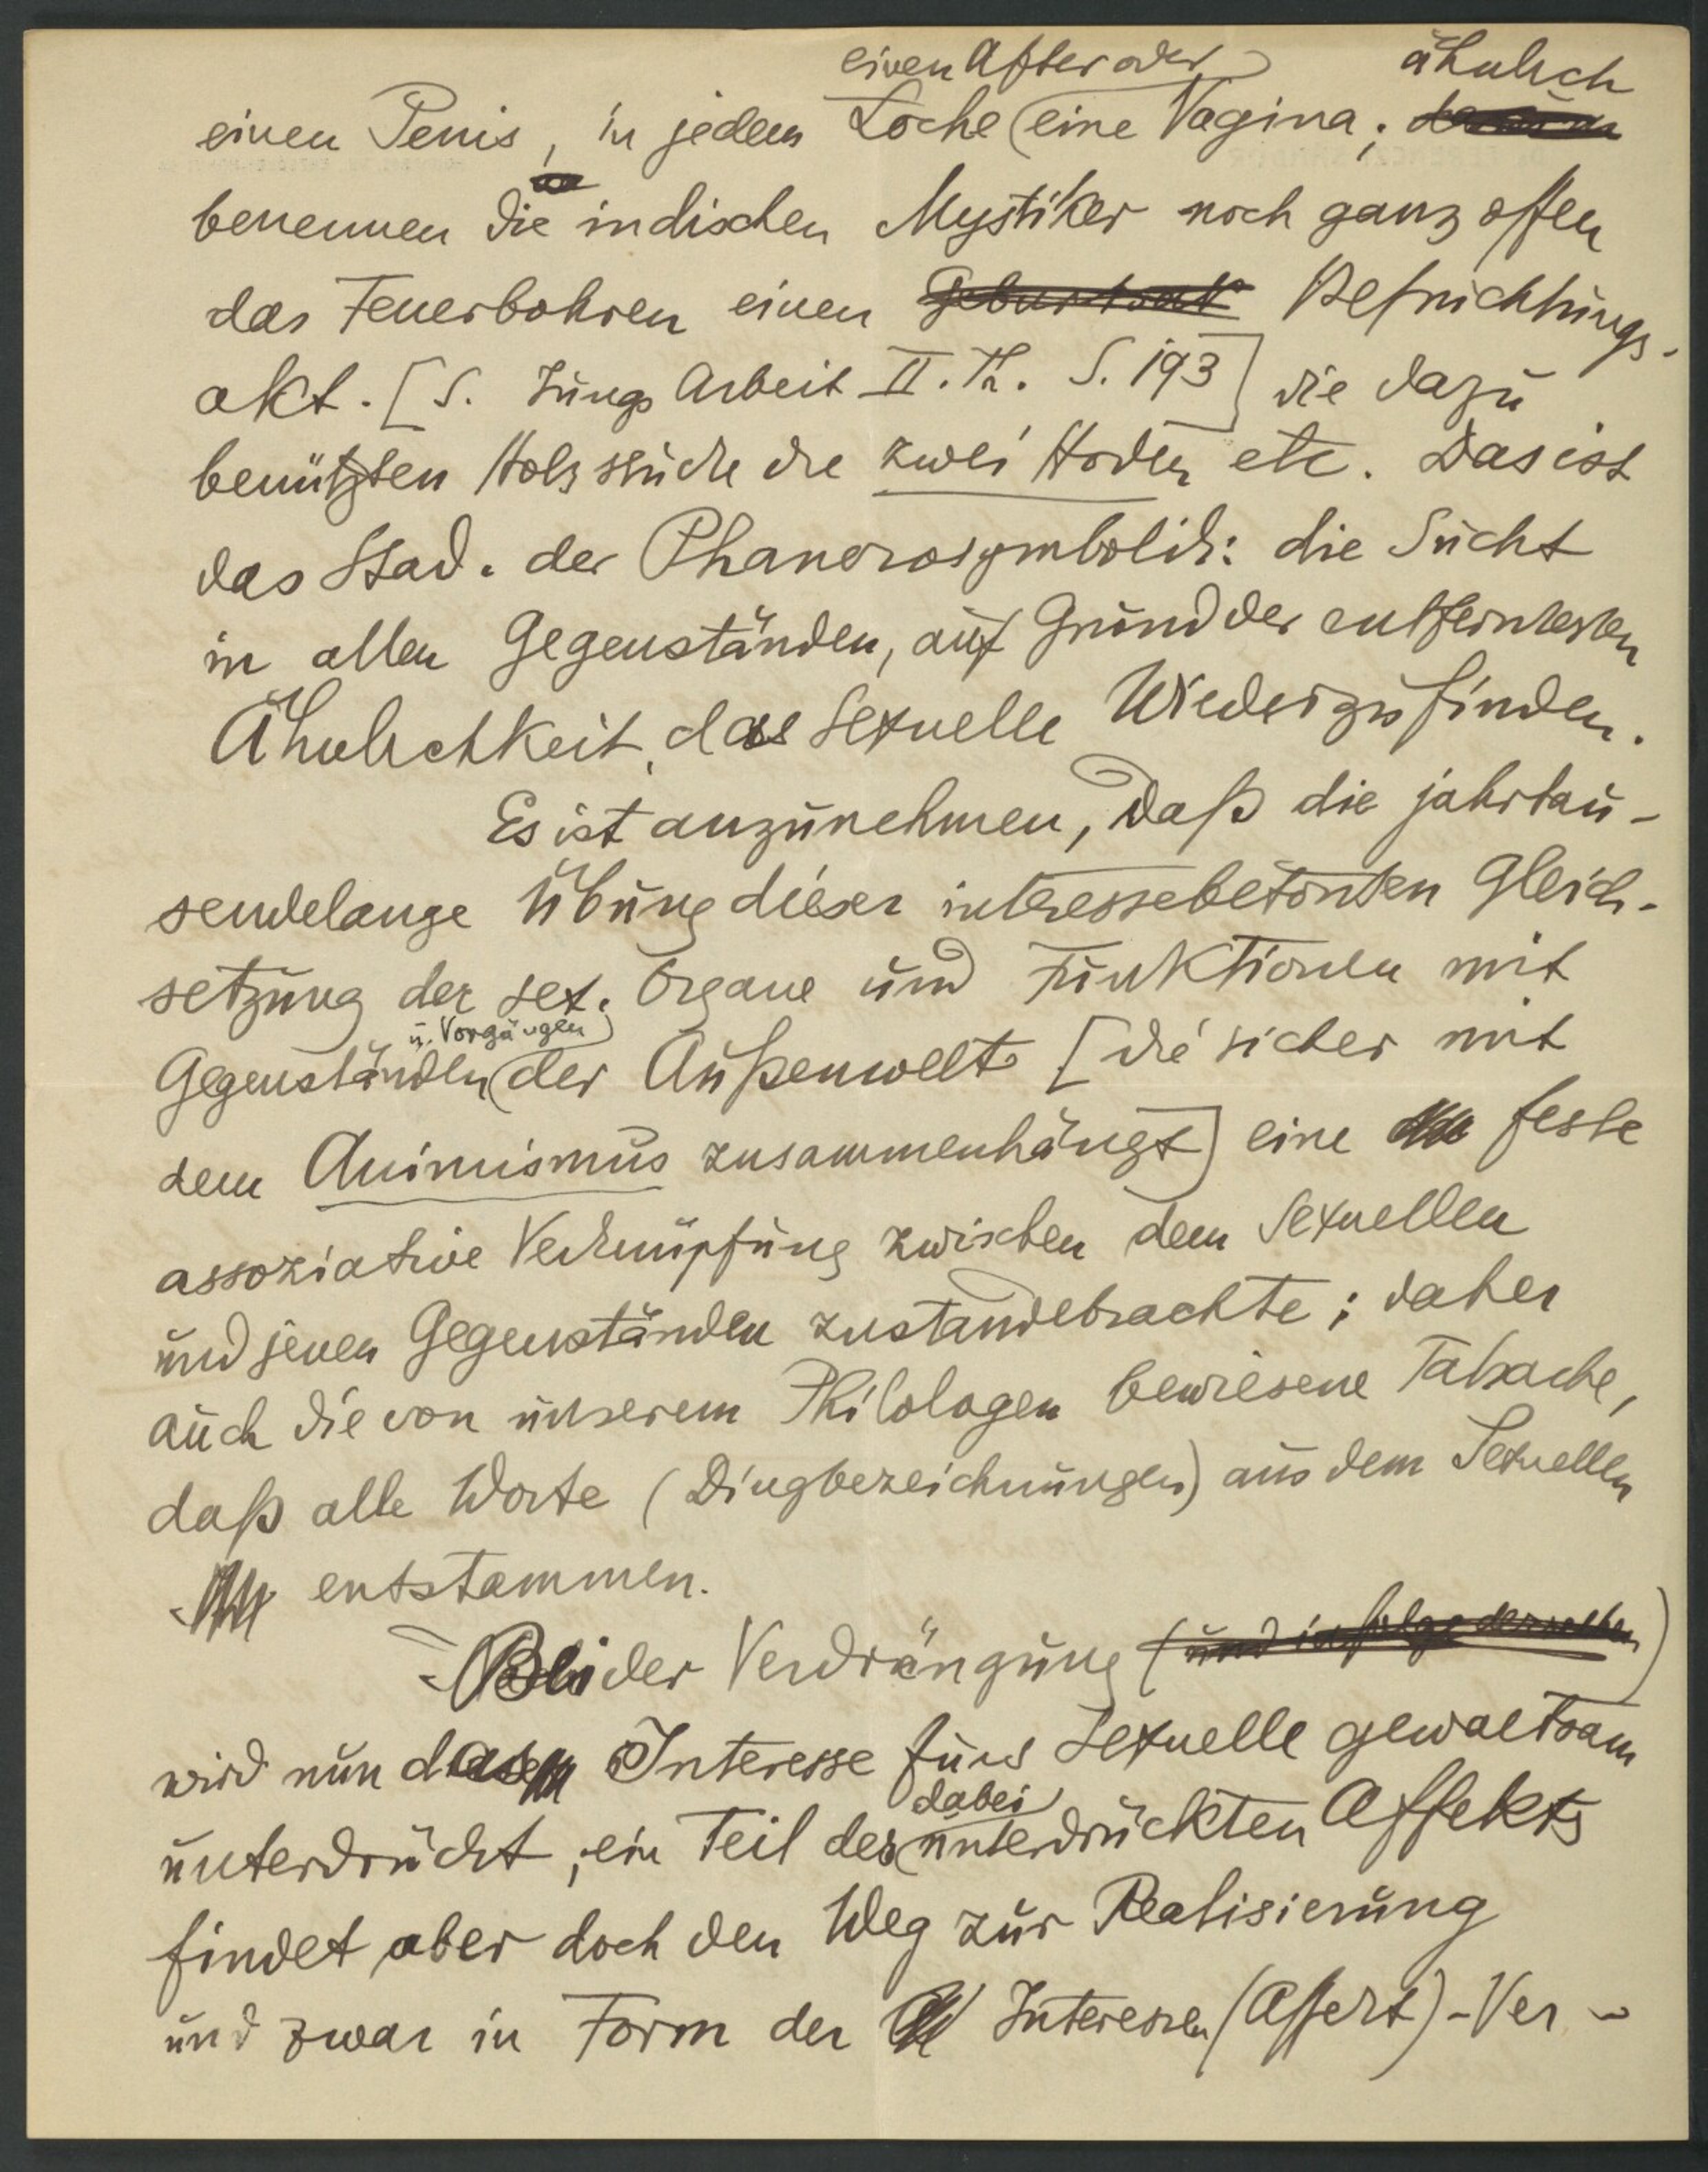 einen After oder ähnlich
einen Penis, in jedem Loche eine Vagina;
benennen die indischen Mystiker noch ganz offen
das Feuerbohren einen Geburtsakt Befruchtungs-
akt. [S. Jungs Arbeit II. Th. S. 193] die dazu
benützten Holzstücke die zwei Hoden etc. Das ist
das Stad. der Phanerosymbolik: die Sucht
in allen Gegenständen, auf Grund der entferntesten
Ähnlichkeit, das Sexuelle Wiederzufinden.
Es ist anzunehmen, daß die jahrtau-
sendelange Übung dieser interessebetonten Gleich-
setzung der sex. Organe und Funktionen mit
u. Vorgängen
Gegenständen der Außenwelt [die sicher mit
dem Animismus zusammenhängt] eine feste
assoziative Verknüpfung zwischen dem Sexuellen
und jenen Gegenständen zustandebrachte; daher
auch die von unserem Philologen bewiesene Tatsache,
daß alle Worte (Dingbezeichnungen) aus dem Sexuellen
entstammen.
Bei der Verdrängung (und infolge derselben)
wird nun das Interesse fürs Sexuelle gewaltsam
dabei
unterdrückt, ein Teil des unterdrückten Affekts
findet aber doch den Weg zur Realisierung
und zwar in Form der Interessen (Affekt)-Ver-